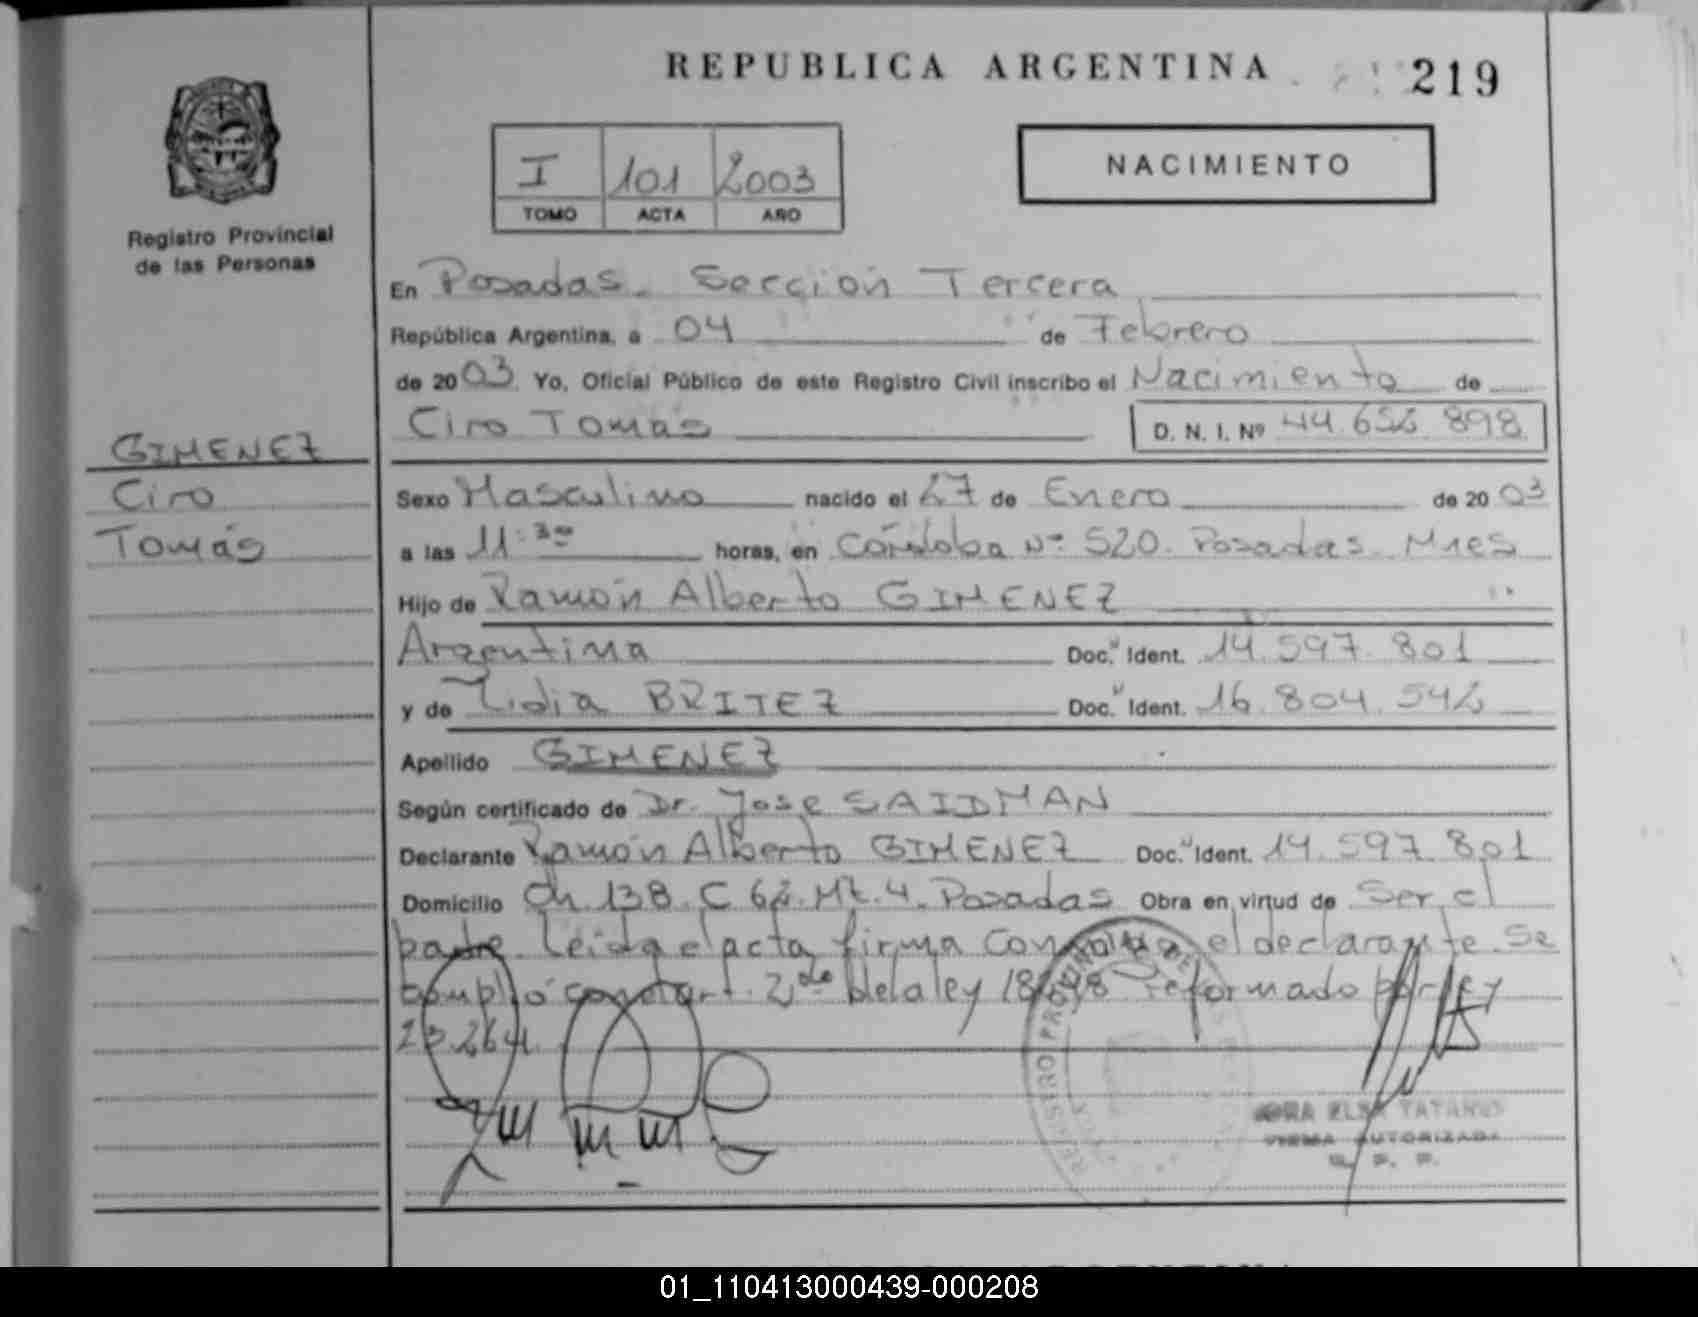 REPUBLICA ARGENTINA
219
I 101 2003
TOMO ACTA AÑO
NACIMIENTO
Registro Provincial
de las Personas
En Posadas. Sección Tercera
República Argentina, a 04 de Febrero
de 2003. Yo, Oficial Público de este Registro Civil inscribo el Nacimiento de
Ciro Tomás D. N. I. Nº 44.652.898
GIMENEZ
Ciro
Tomás
Sexo Masculino nacido el 27 de Enero de 2003
a las 11:30 horas, en Córdoba Nº 520. Posadas. Mnes
Hijo de Ramón Alberto GIMENEZ
Argentina Doc. Ident. 14.597.801
y de Lidia BRITEZ Doc. Ident. 16.804.542
Apellido GIMENEZ
Según certificado de Dr. Jose SAIDMAN
Declarante Ramón Alberto GIMENEZ Doc. Ident. 14.597.801
Domicilio Ch. 138. C 62. Mz. 4. Posadas Obra en virtud de Ser el
padre. Leida el acta firma el declarante. Se
cumplió con el art. 2do de la ley reformado por ley
23.264.
REGISTRO PROVINCIAL DE
FIRMA AUTORIZADA
01_110413000439-000208